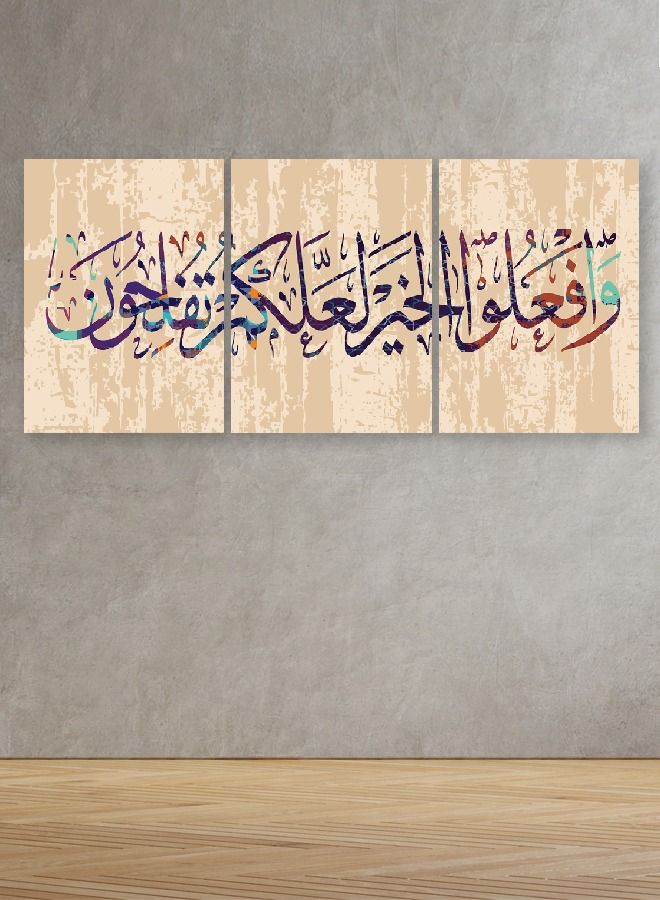 وَافْعَلُوا الْخَيْرَ لَعَلَّكُمْ تُفْلِحُونَ